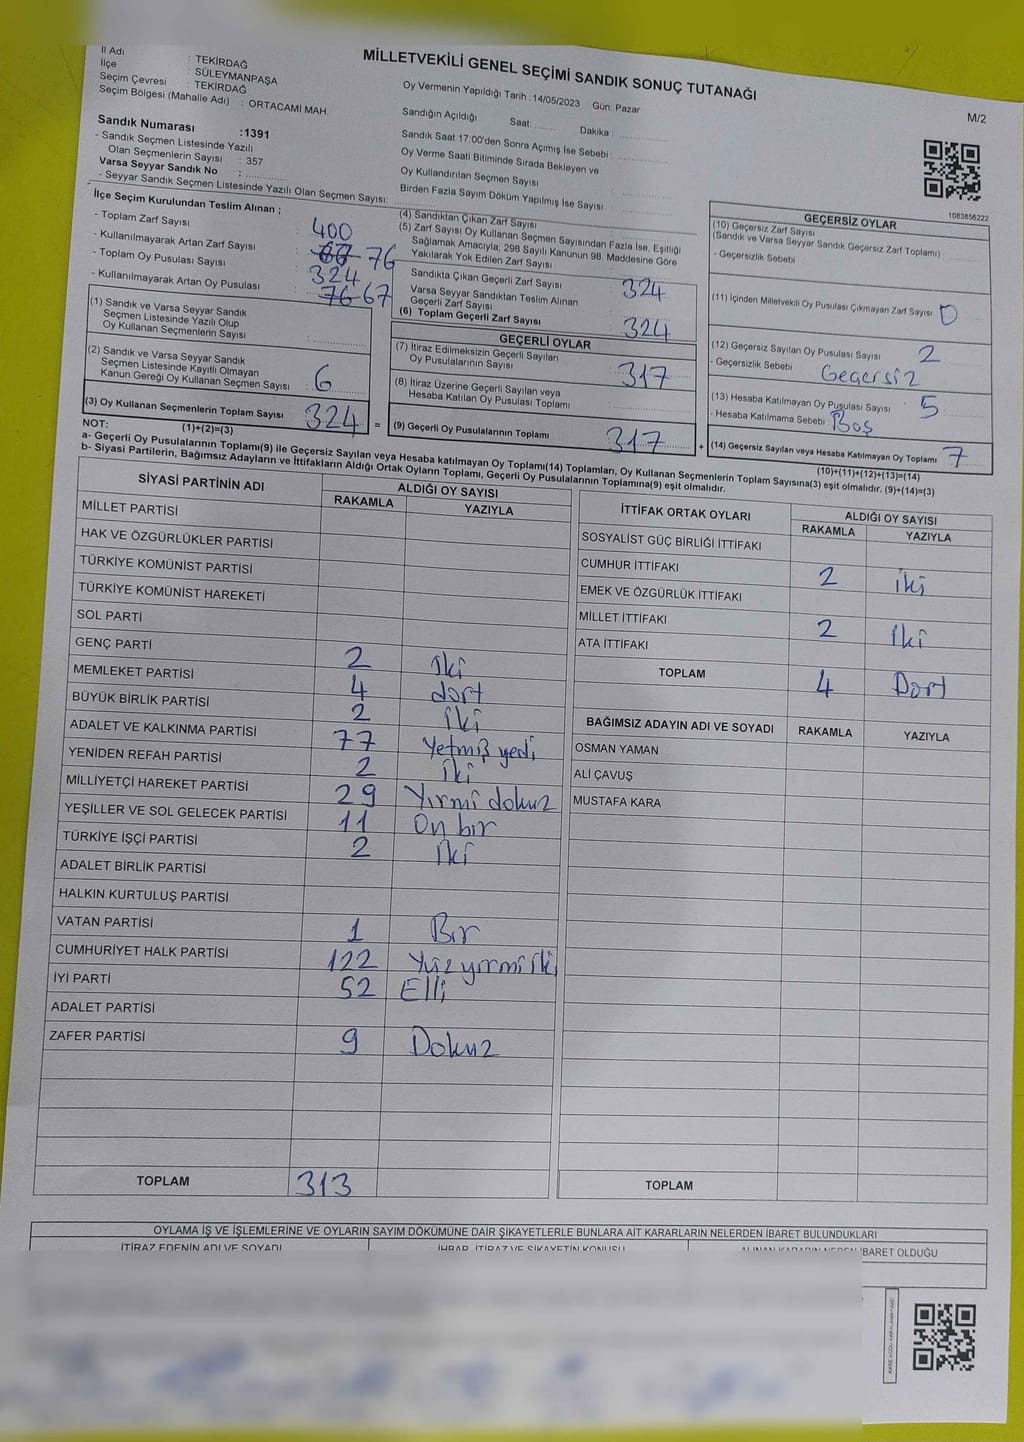 MİLLETVEKİLİ GENEL SEÇİMİ SANDIK SONUÇ TUTANAĞI
M/2
İl Adı : TEKİRDAĞ
İlçe : SÜLEYMANPAŞA
Seçim Çevresi : TEKİRDAĞ
Seçim Bölgesi (Mahalle Adı) : ORTACAMİ MAH.
Sandık Numarası :1391
- Sandık Seçmen Listesinde Yazılı
Olan Seçmenlerin Sayısı : 357
Varsa Seyyar Sandık No :
- Seyyar Sandık Seçmen Listesinde Yazılı Olan Seçmen Sayısı:
Oy Vermenin Yapıldığı Tarih : 14/05/2023 Gün: Pazar
Sandığın Açıldığı Saat: Dakika :
Sandık Saat 17:00'den Sonra Açılmış İse Sebebi :
Oy Verme Saati Bitiminde Sırada Bekleyen ve
Oy Kullandırılan Seçmen Sayısı
Birden Fazla Sayım Döküm Yapılmış İse Sayısı
1083856222
İlçe Seçim Kurulundan Teslim Alınan ;
- Toplam Zarf Sayısı : 400
- Kullanılmayarak Artan Zarf Sayısı : 76
- Toplam Oy Pusulası Sayısı : 324
- Kullanılmayarak Artan Oy Pusulası : 76 67
(1) Sandık ve Varsa Seyyar Sandık
Seçmen Listesinde Yazılı Olup
Oy Kullanan Seçmenlerin Sayısı :
(2) Sandık ve Varsa Seyyar Sandık
Seçmen Listesinde Kayıtlı Olmayan
Kanun Gereği Oy Kullanan Seçmen Sayısı : 6
(3) Oy Kullanan Seçmenlerin Toplam Sayısı : 324
(1)+(2)=(3)
(4) Sandıktan Çıkan Zarf Sayısı
(5) Zarf Sayısı Oy Kullanan Seçmen Sayısından Fazla İse, Eşitliği
Sağlamak Amacıyla; 298 Sayılı Kanunun 98. Maddesine Göre
Yakılarak Yok Edilen Zarf Sayısı
Sandıkta Çıkan Geçerli Zarf Sayısı : 324
Varsa Seyyar Sandıktan Teslim Alınan
Geçerli Zarf Sayısı
(6) Toplam Geçerli Zarf Sayısı : 324
GEÇERLİ OYLAR
(7) İtiraz Edilmeksizin Geçerli Sayılan
Oy Pusulalarının Sayısı : 317
(8) İtiraz Üzerine Geçerli Sayılan veya
Hesaba Katılan Oy Pusulası Toplamı :
= (9) Geçerli Oy Pusulalarının Toplamı 317 +
GEÇERSİZ OYLAR
(10) Geçersiz Zarf Sayısı
(Sandık ve Varsa Seyyar Sandık Geçersiz Zarf Toplamı) :
- Geçersizlik Sebebi :
(11) İçinden Milletvekili Oy Pusulası Çıkmayan Zarf Sayısı : 0
(12) Geçersiz Sayılan Oy Pusulası Sayısı : 2
- Geçersizlik Sebebi : Geçersiz
(13) Hesaba Katılmayan Oy Pusulası Sayısı : 5
- Hesaba Katılmama Sebebi : Boş
(14) Geçersiz Sayılan veya Hesaba Katılmayan Oy Toplamı : 7
(10)+(11)+(12)+(13)=(14)
NOT:
a- Geçerli Oy Pusulalarının Toplamı(9) ile Geçersiz Sayılan veya Hesaba katılmayan Oy Toplamı(14) Toplamları, Oy Kullanan Seçmenlerin Toplam Sayısına(3) eşit olmalıdır. (9)+(14)=(3)
b- Siyasi Partilerin, Bağımsız Adayların ve İttifakların Aldığı Ortak Oyların Toplamı, Geçerli Oy Pusulalarının Toplamına(9) eşit olmalıdır.
SİYASİ PARTİNİN ADI ALDIĞI OY SAYISI
RAKAMLA YAZIYLA
MİLLET PARTİSİ
HAK VE ÖZGÜRLÜKLER PARTİSİ
TÜRKİYE KOMÜNİST PARTİSİ
TÜRKİYE KOMÜNİST HAREKETİ
SOL PARTİ
GENÇ PARTİ 2 iki
MEMLEKET PARTİSİ 4 dört
BÜYÜK BİRLİK PARTİSİ 2 iki
ADALET VE KALKINMA PARTİSİ 77 Yetmiş yedi
YENİDEN REFAH PARTİSİ 2 iki
MİLLİYETÇİ HAREKET PARTİSİ 29 Yirmi dokuz
YEŞİLLER VE SOL GELECEK PARTİSİ 11 On bir
TÜRKİYE İŞÇİ PARTİSİ 2 iki
ADALET BİRLİK PARTİSİ
HALKIN KURTULUŞ PARTİSİ
VATAN PARTİSİ 1 Bir
CUMHURİYET HALK PARTİSİ 122 Yüz yirmi iki
İYİ PARTİ 52 Elli
ADALET PARTİSİ
ZAFER PARTİSİ 9 Dokuz
TOPLAM 313
İTTİFAK ORTAK OYLARI ALDIĞI OY SAYISI
RAKAMLA YAZIYLA
SOSYALİST GÜÇ BİRLİĞİ İTTİFAKI
CUMHUR İTTİFAKI 2 iki
EMEK VE ÖZGÜRLÜK İTTİFAKI
MİLLET İTTİFAKI 2 iki
ATA İTTİFAKI
TOPLAM 4 Dört
BAĞIMSIZ ADAYIN ADI VE SOYADI RAKAMLA YAZIYLA
OSMAN YAMAN
ALİ ÇAVUŞ
MUSTAFA KARA
TOPLAM
OYLAMA İŞ VE İŞLEMLERİNE VE OYLARIN SAYIM DÖKÜMÜNE DAİR ŞİKAYETLERLE BUNLARA AİT KARARLARIN NELERDEN İBARET BULUNDUKLARI
İTİRAZ EDENİN ADI VE SOYADI İHBAR, İTİRAZ VE ŞİKAYETİN KONUSU ALINAN KARARIN NEDEN İBARET OLDUĞU